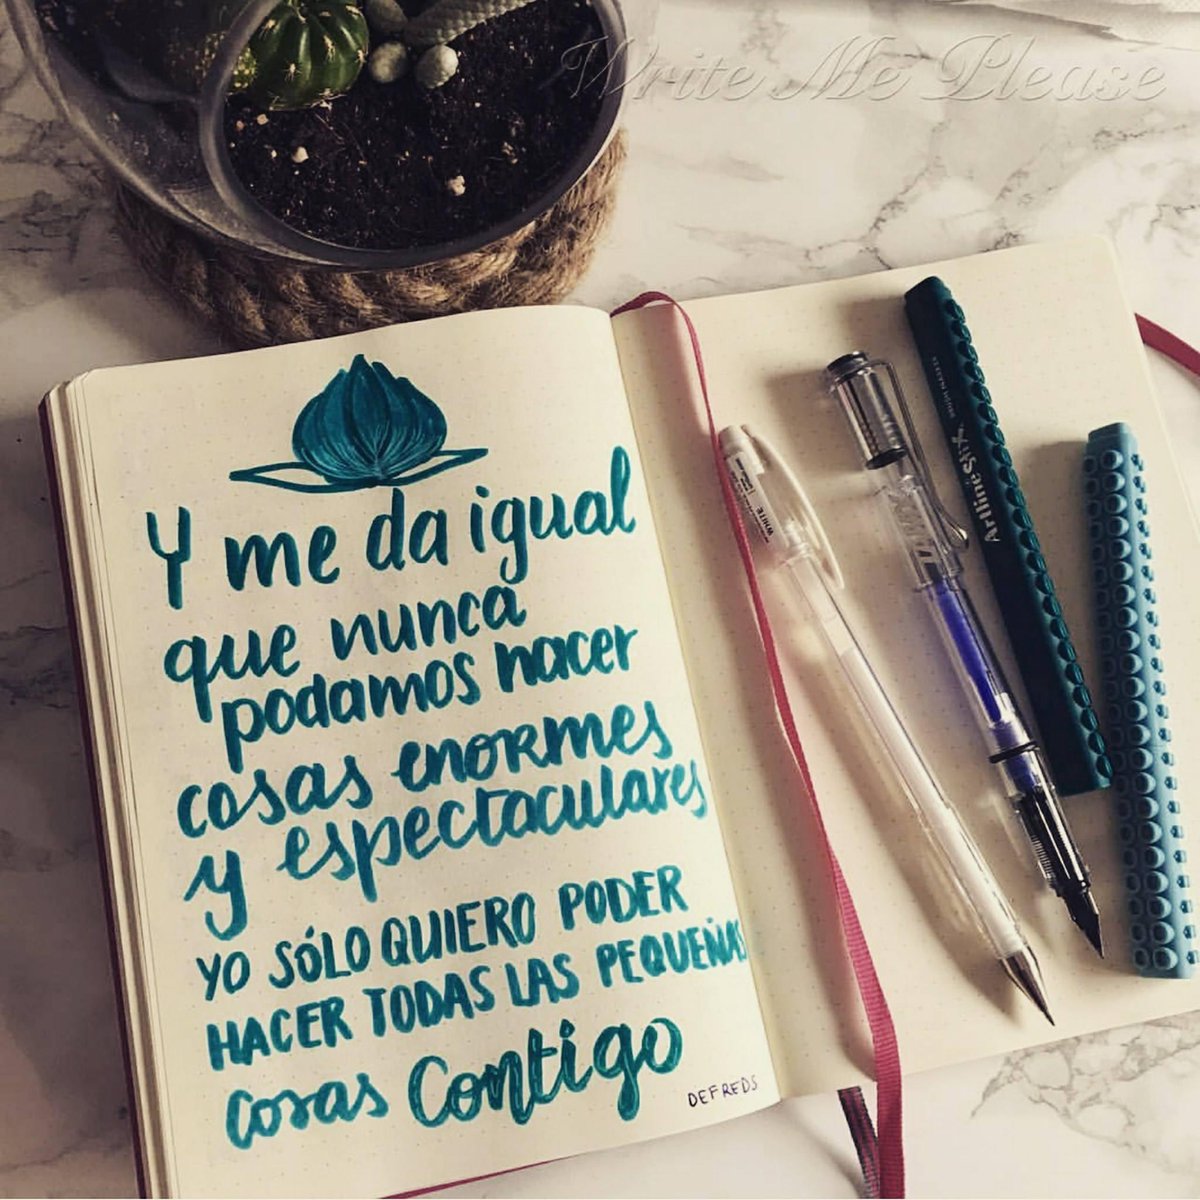 Write Me Please
Y me da igual
que nunca
podamos hacer
cosas enormes
y espectaculares
YO SÓLO QUIERO PODER
HACER TODAS LAS PEQUEÑAS
cosas Contigo
DEFREDS
WHITE
ArtlineStix
BRUSH MARKER